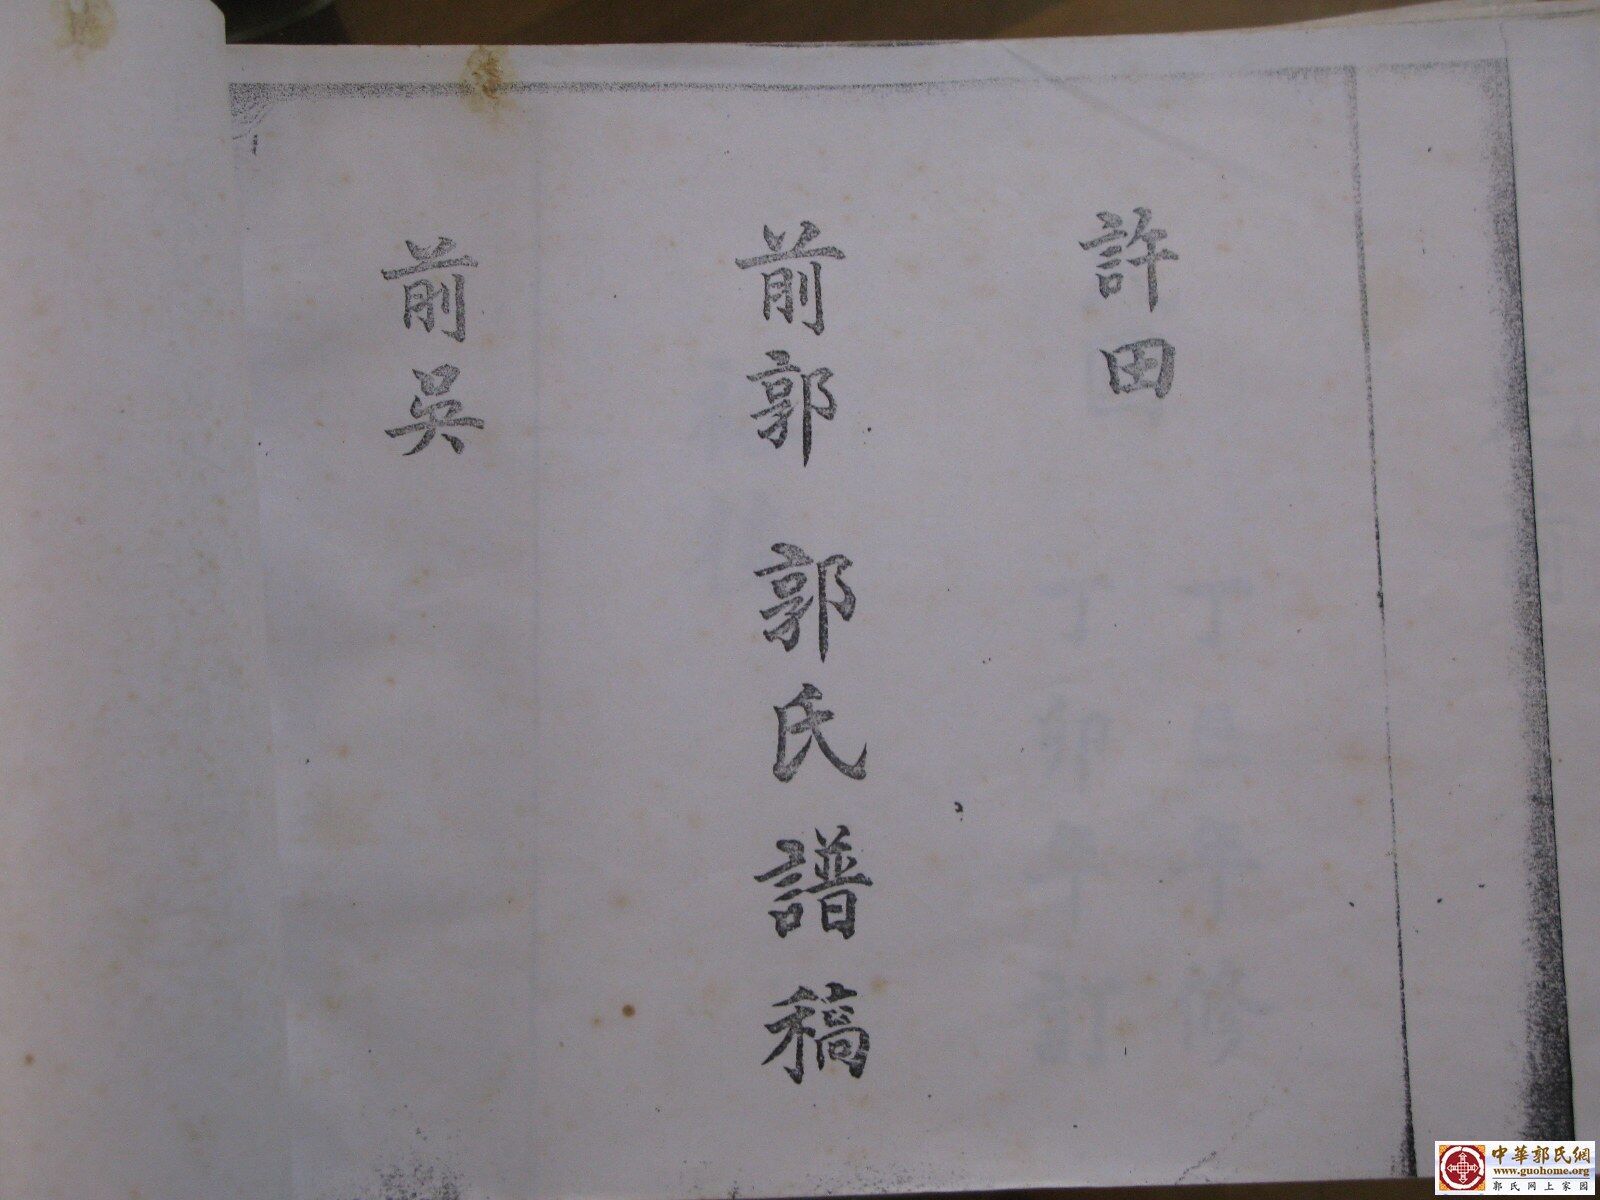 許田
前郭 郭氏譜稿
前吳
中華郭氏網
www.guohome.org
郭氏网上家园